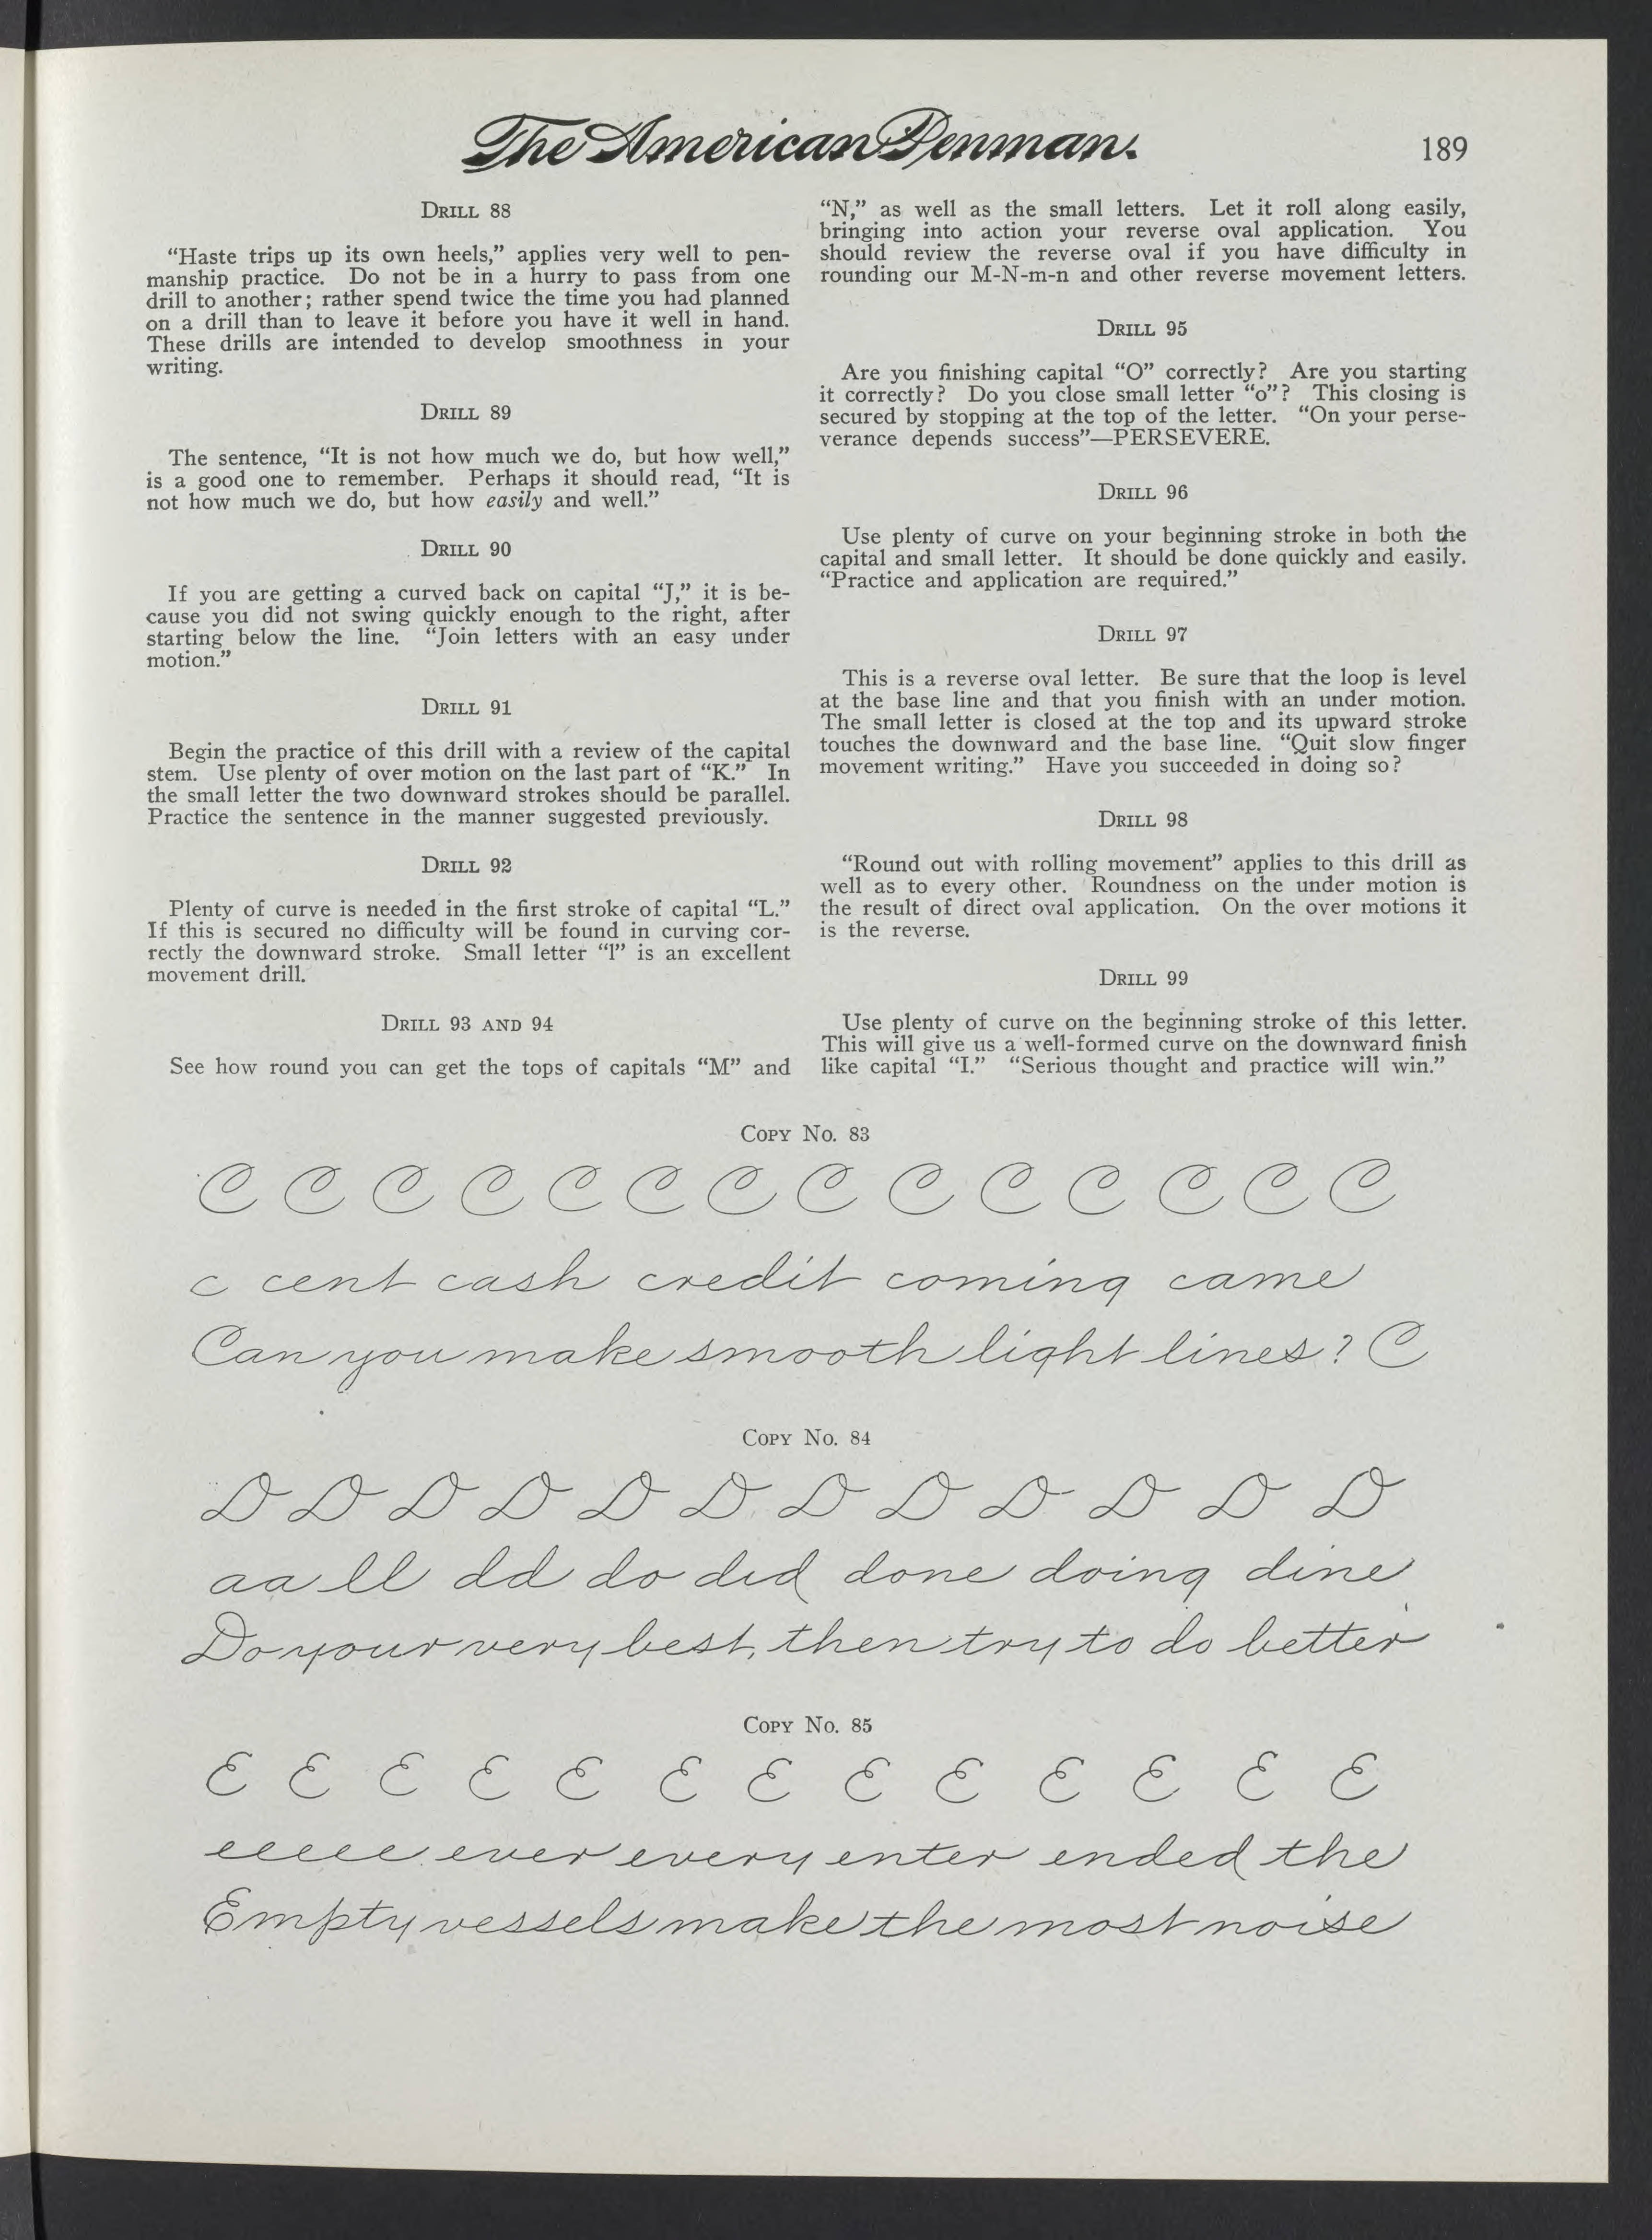 The American Penman.
189
DRILL 88
“Haste trips up its own heels,” applies very well to pen-
manship practice. Do not be in a hurry to pass from one
drill to another; rather spend twice the time you had planned
on a drill than to leave it before you have it well in hand.
These drills are intended to develop smoothness in your
writing.
DRILL 89
The sentence, “It is not how much we do, but how well,”
is a good one to remember. Perhaps it should read, “It is
not how much we do, but how easily and well.”
DRILL 90
If you are getting a curved back on capital “J,” it is be-
cause you did not swing quickly enough to the right, after
starting below the line. “Join letters with an easy under
motion.”
DRILL 91
Begin the practice of this drill with a review of the capital
stem. Use plenty of over motion on the last part of “K.” In
the small letter the two downward strokes should be parallel.
Practice the sentence in the manner suggested previously.
DRILL 92
Plenty of curve is needed in the first stroke of capital “L.”
If this is secured no difficulty will be found in curving cor-
rectly the downward stroke. Small letter “l” is an excellent
movement drill.
DRILL 93 AND 94
See how round you can get the tops of capitals “M” and
“N,” as well as the small letters. Let it roll along easily,
bringing into action your reverse oval application. You
should review the reverse oval if you have difficulty in
rounding our M-N-m-n and other reverse movement letters.
DRILL 95
Are you finishing capital “O” correctly? Are you starting
it correctly? Do you close small letter “o”? This closing is
secured by stopping at the top of the letter. “On your perse-
verance depends success”—PERSEVERE.
DRILL 96
Use plenty of curve on your beginning stroke in both the
capital and small letter. It should be done quickly and easily.
“Practice and application are required.”
DRILL 97
This is a reverse oval letter. Be sure that the loop is level
at the base line and that you finish with an under motion.
The small letter is closed at the top and its upward stroke
touches the downward and the base line. “Quit slow finger
movement writing.” Have you succeeded in doing so?
DRILL 98
“Round out with rolling movement” applies to this drill as
well as to every other. Roundness on the under motion is
the result of direct oval application. On the over motions it
is the reverse.
DRILL 99
Use plenty of curve on the beginning stroke of this letter.
This will give us a well-formed curve on the downward finish
like capital “I.” “Serious thought and practice will win.”
COPY NO. 83
C C C C C C C C C C C C C C
c cent cash credit coming came
Can you make smooth light lines? C
COPY NO. 84
D D D D D D D D D D D D
aa ll dd do did done doing dine
Do your very best, then try to do better
COPY NO. 85
E E E E E E E E E E E E E
eeeee ever every enter ended the
Empty vessels make the most noise